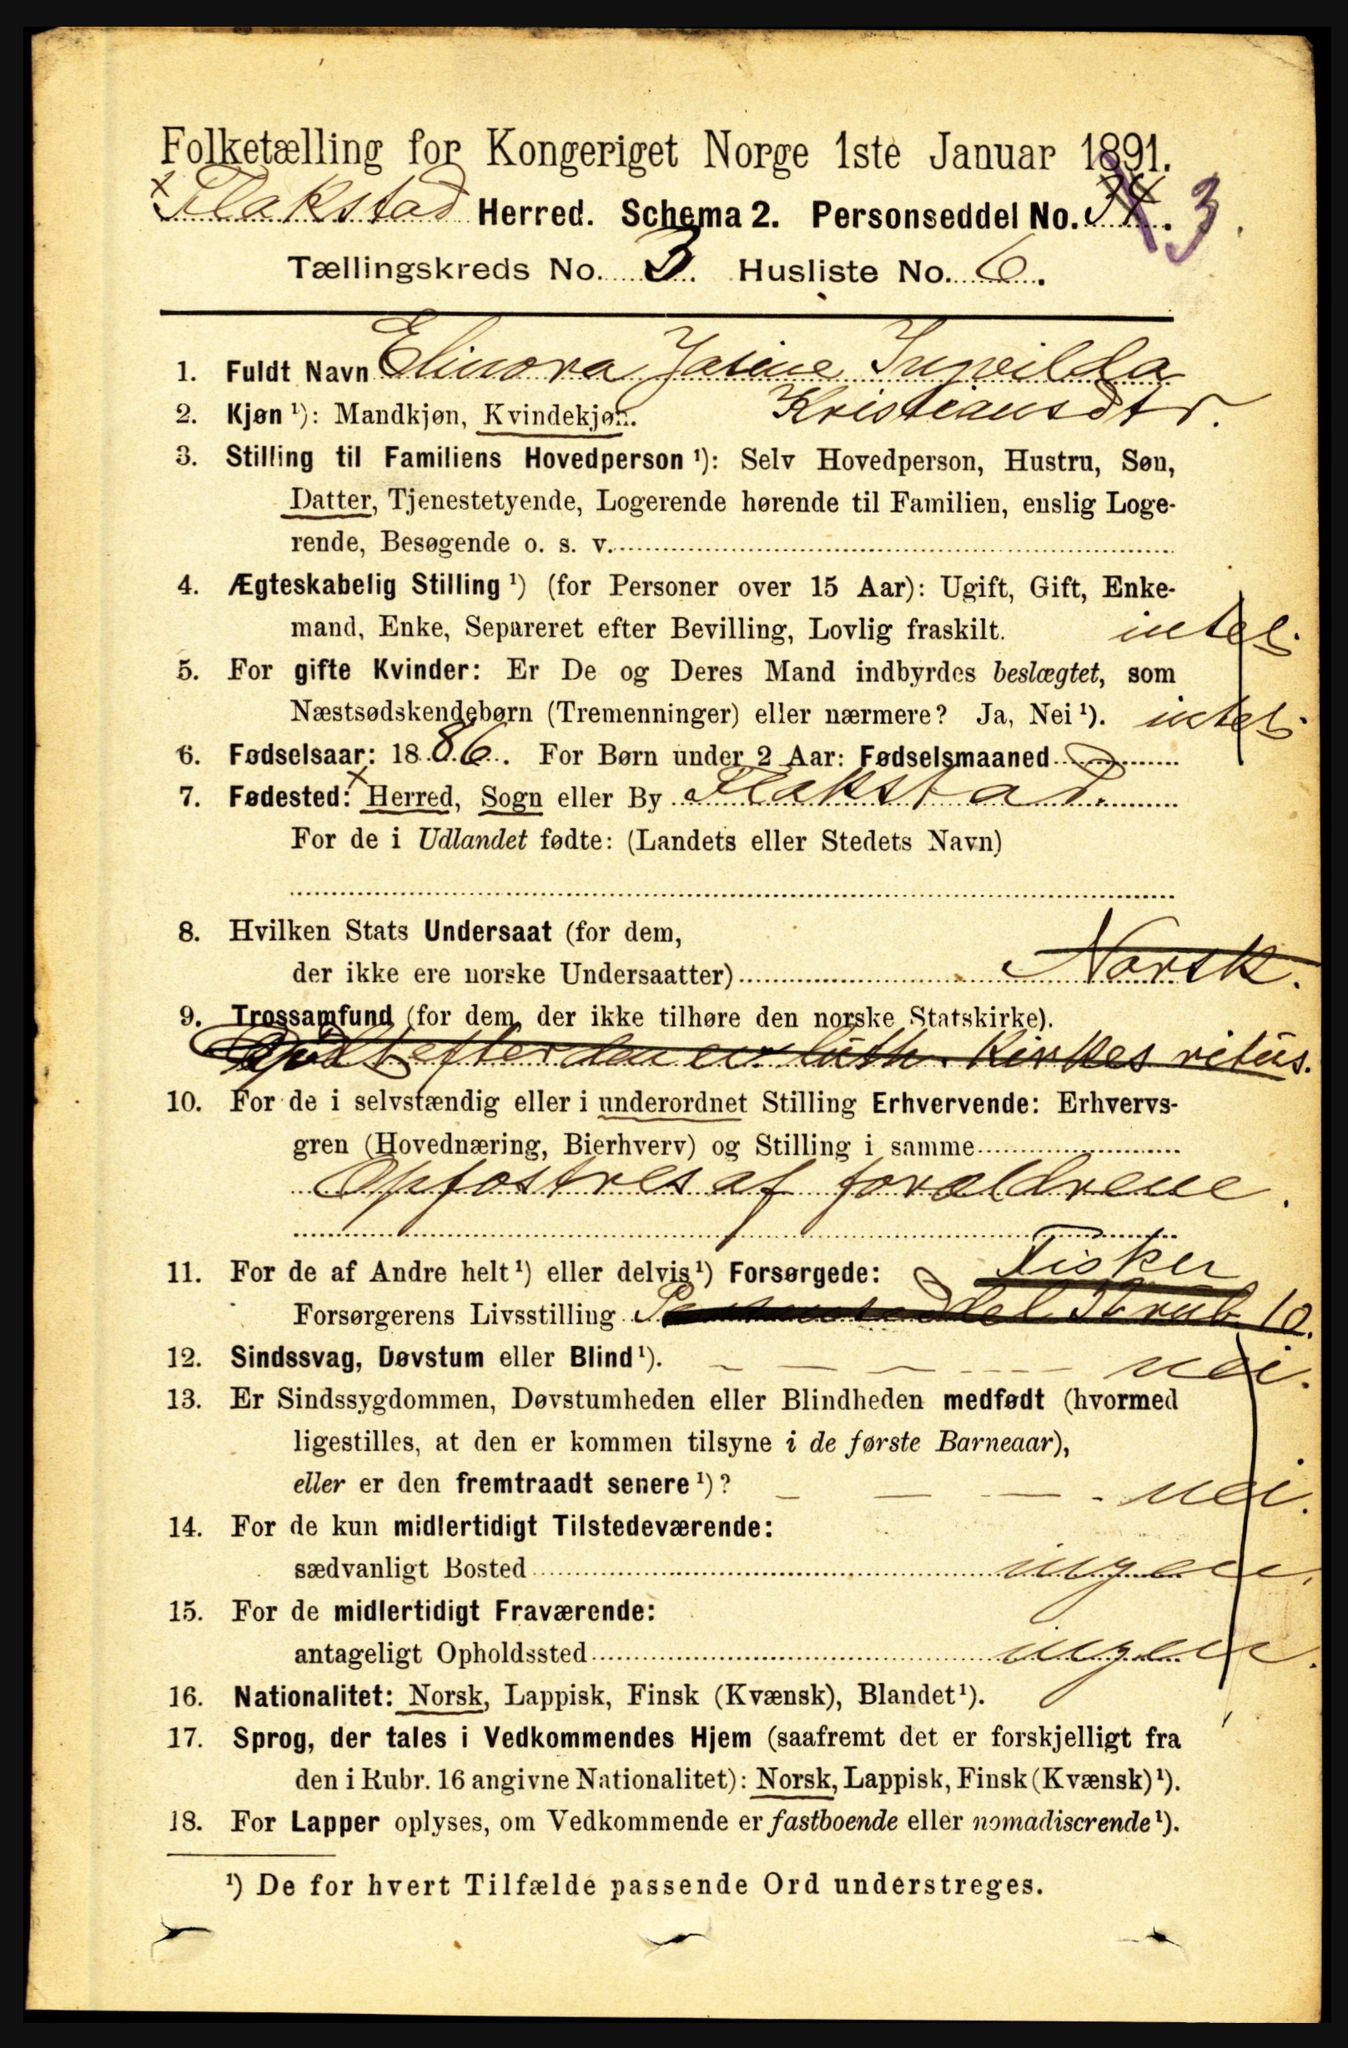 Folketælling for Kongeriget Norge 1ste Januar 1891.
Flakstad Herred. Schema 2. Personseddel No. 34. 3.
Tællingskreds No. 3. Husliste No. 6.
1. Fuldt Navn Elinora Jasine Ingvilda
Kristiansdtr.
2. Kjøn ¹): Mandkjøn, Kvindekjøn.
3. Stilling til Familiens Hovedperson ¹): Selv Hovedperson, Hustru, Søn,
Datter, Tjenestetyende, Logerende hørende til Familien, enslig Loge-
rende, Besøgende o. s. v.
4. Ægteskabelig Stilling ¹) (for Personer over 15 Aar): Ugift, Gift, Enke-
mand, Enke, Separeret efter Bevilling, Lovlig fraskilt. intet.
5. For gifte Kvinder: Er De og Deres Mand indbyrdes beslægtet, som
Næstsødskendebørn (Tremenninger) eller nærmere? Ja, Nei ¹). intet.
6. Fødselsaar: 1886. For Børn under 2 Aar: Fødselsmaaned
7. Fødested: Herred, Sogn eller By Flakstad.
For de i Udlandet fødte: (Landets eller Stedets Navn)
8. Hvilken Stats Undersaat (for dem,
der ikke ere norske Undersaatter) Norsk.
9. Trossamfund (for dem, der ikke tilhøre den norske Statskirke).
Døbt efter den ev. luth. Kirkes ritus.
10. For de i selvstændig eller i underordnet Stilling Erhvervende: Erhvervs-
gren (Hovednæring, Bierhverv) og Stilling i samme
Opfostres af forældrene.
11. For de af Andre helt ¹) eller delvis ¹) Forsørgede: Fisker
Forsørgerens Livsstilling Personseddel Rub. 10.
12. Sindssvag, Døvstum eller Blind ¹). nei.
13. Er Sindssygdommen, Døvstumheden eller Blindheden medfødt (hvormed
ligestilles, at den er kommen tilsyne i de første Barneaar),
eller er den fremtraadt senere ¹)? nei.
14. For de kun midlertidigt Tilstedeværende:
sædvanligt Bosted ingen.
15. For de midlertidigt Fraværende:
antageligt Opholdssted ingen.
16. Nationalitet: Norsk, Lappisk, Finsk (Kvænsk), Blandet ¹).
17. Sprog, der tales i Vedkommendes Hjem (saafremt det er forskjelligt fra
den i Rubr. 16 angivne Nationalitet): Norsk, Lappisk, Finsk (Kvænsk) ¹).
18. For Lapper oplyses, om Vedkommende er fastboende eller nomadiserende ¹).
¹) De for hvert Tilfælde passende Ord understreges.